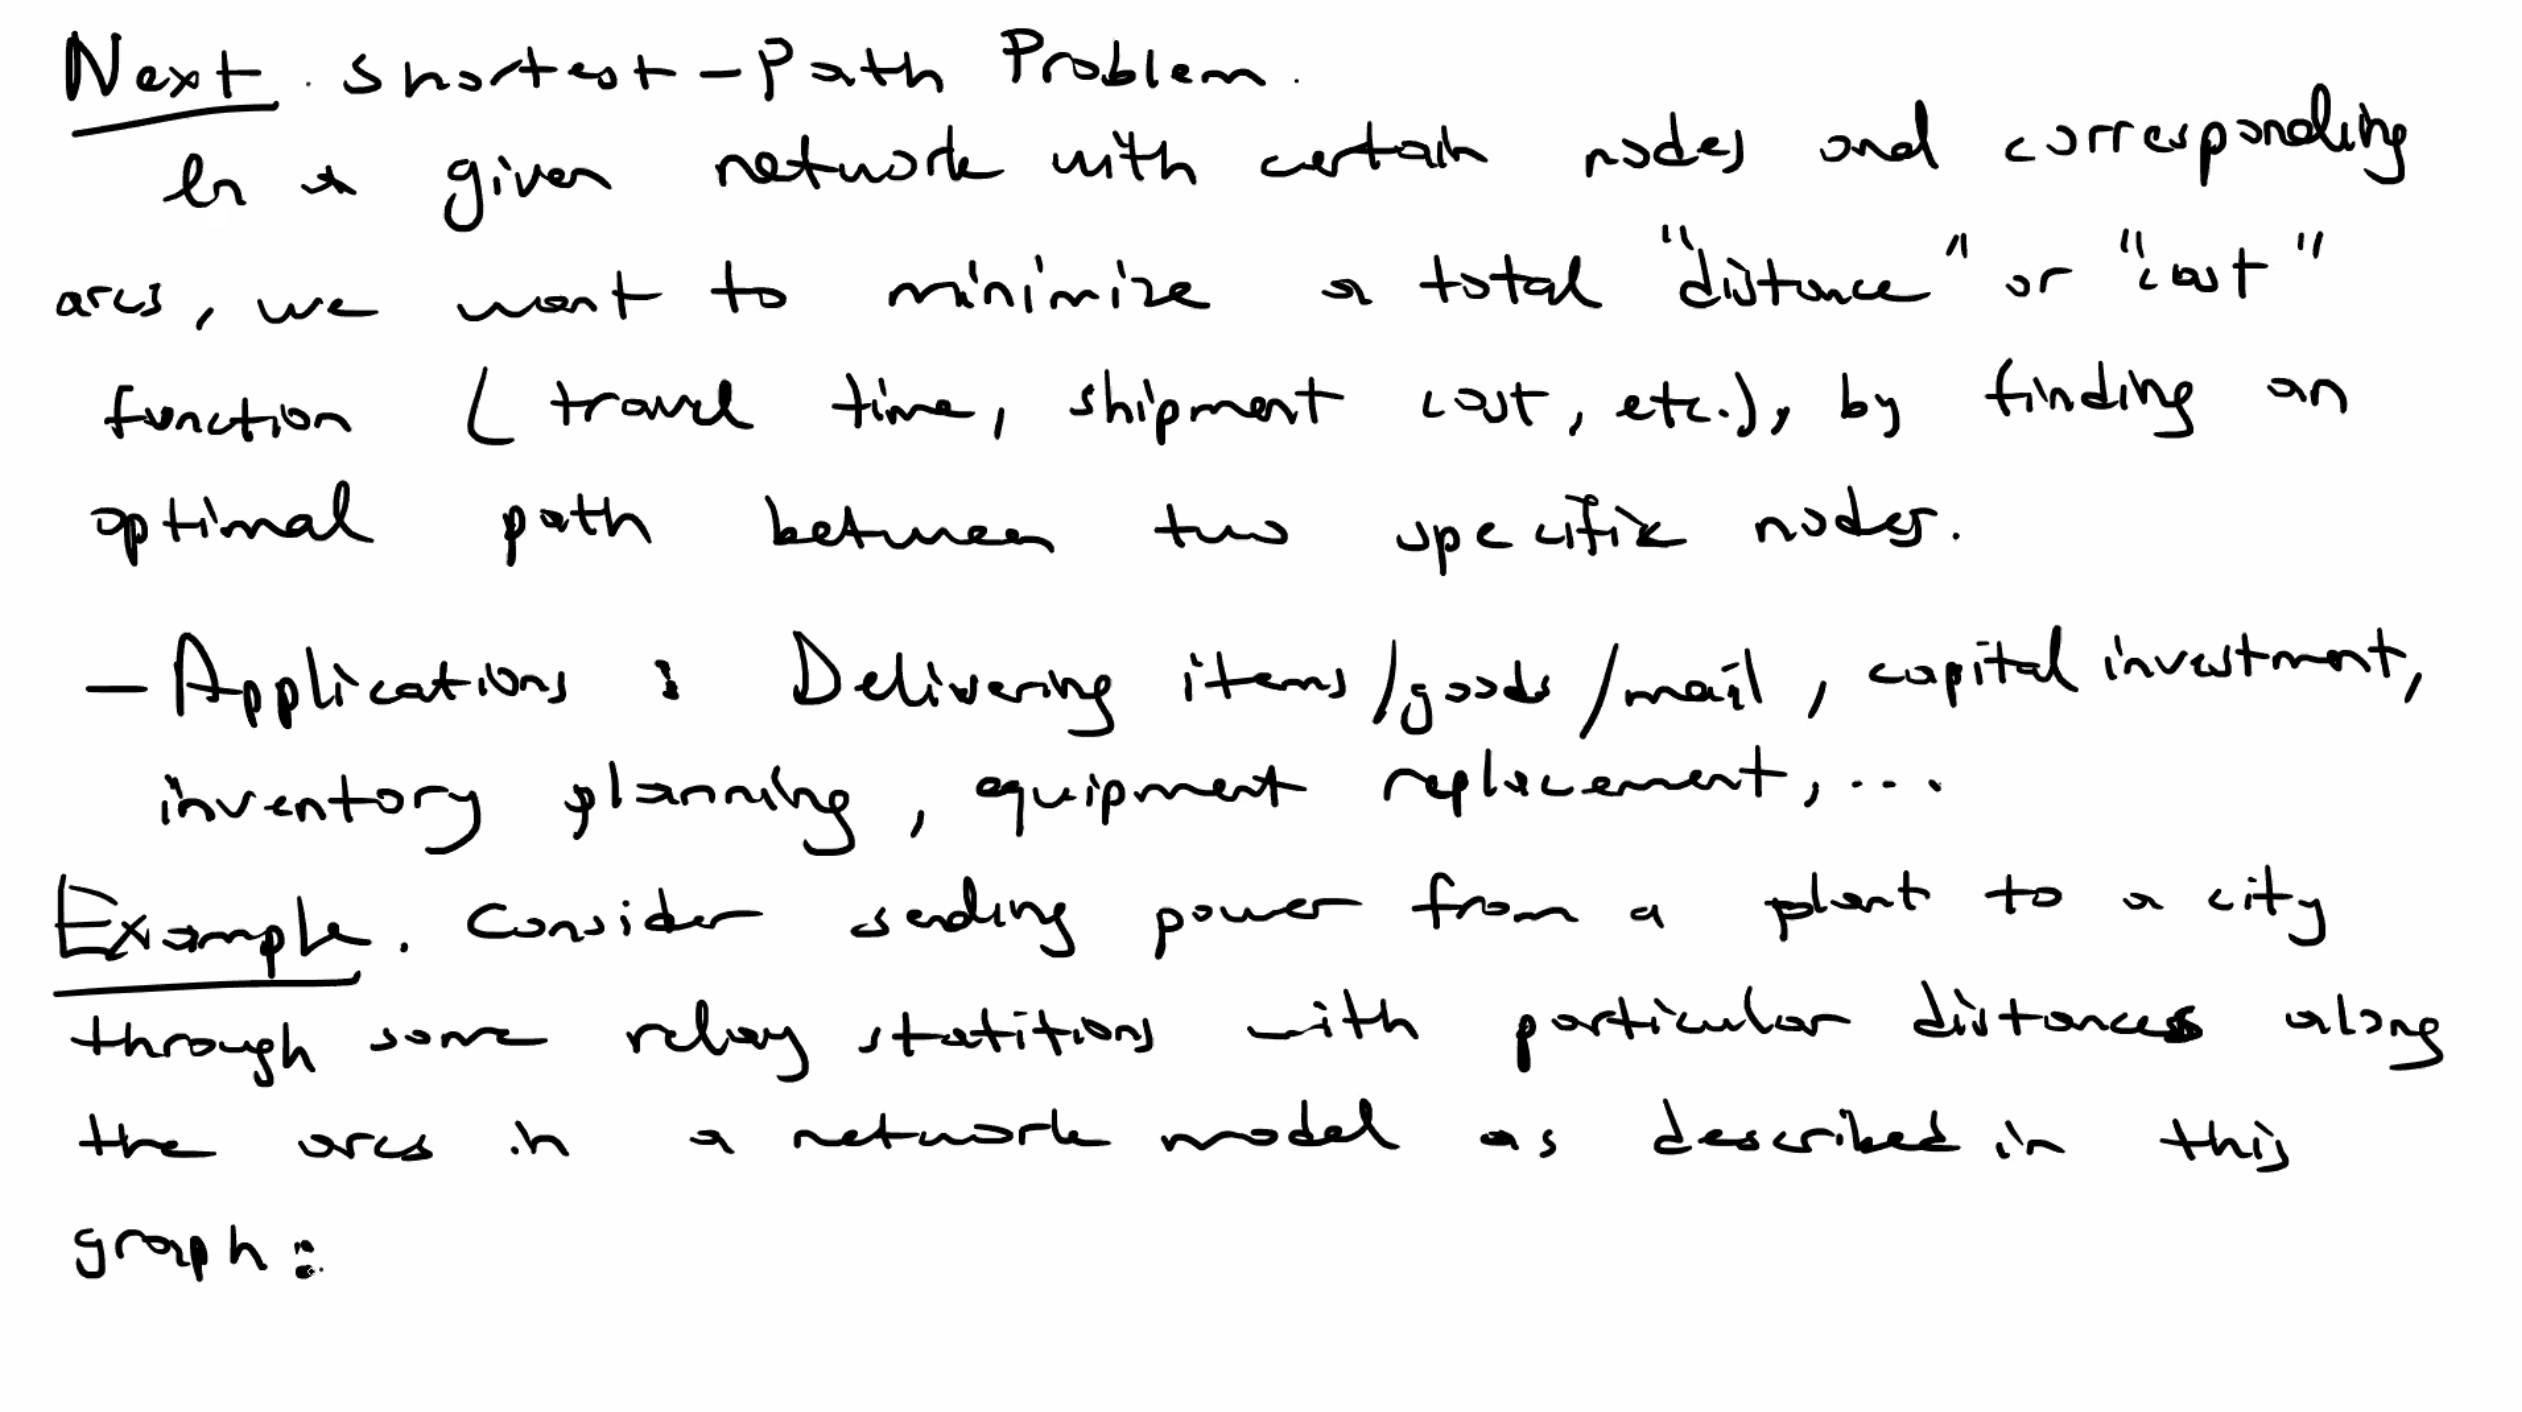 Next. Shortest-Path Problem.
In a given network with certain nodes and corresponding
arcs, we want to minimize a total "distance" or "cost"
function (travel time, shipment cost, etc.), by finding an
optimal path between two specific nodes.
- Applications : Delivering items/goods/mail, capital investment,
inventory planning, equipment replacement, ...
Example. Consider sending power from a plant to a city
through some relay statitions with particular distances along
the arcs in a network model as described in this
graph: